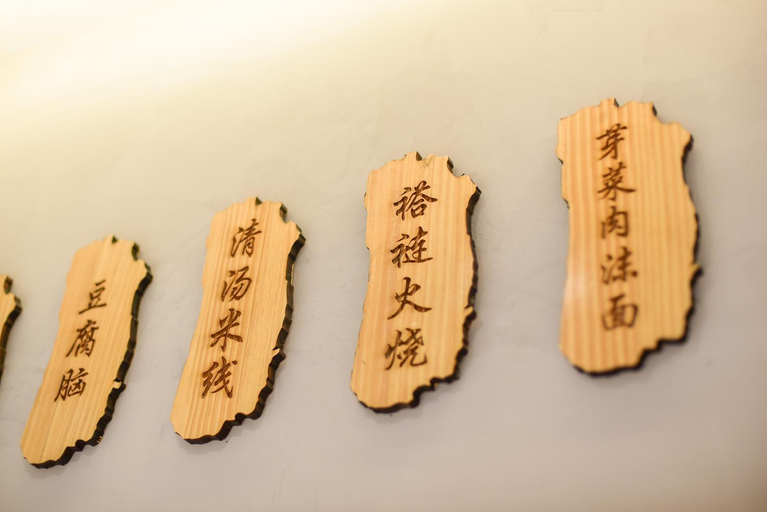 豆腐脑
清汤米线
褡裢火烧
芽菜肉沫面